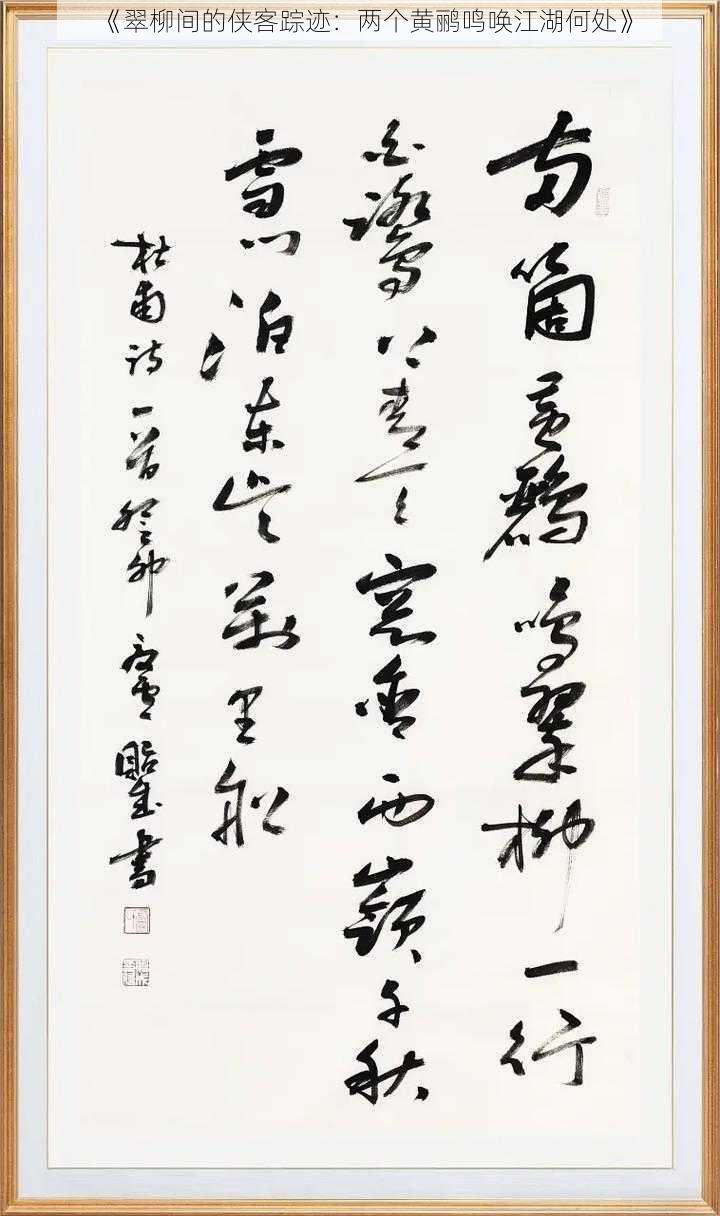 《翠柳间的侠客踪迹：两个黄鹂鸣唤江湖何处》
两箇黄鸝鳴翠柳一行
白鷺上青天窗含西嶺千秋
雪门泊东吴萬里船
杜甫诗一首癸卯书